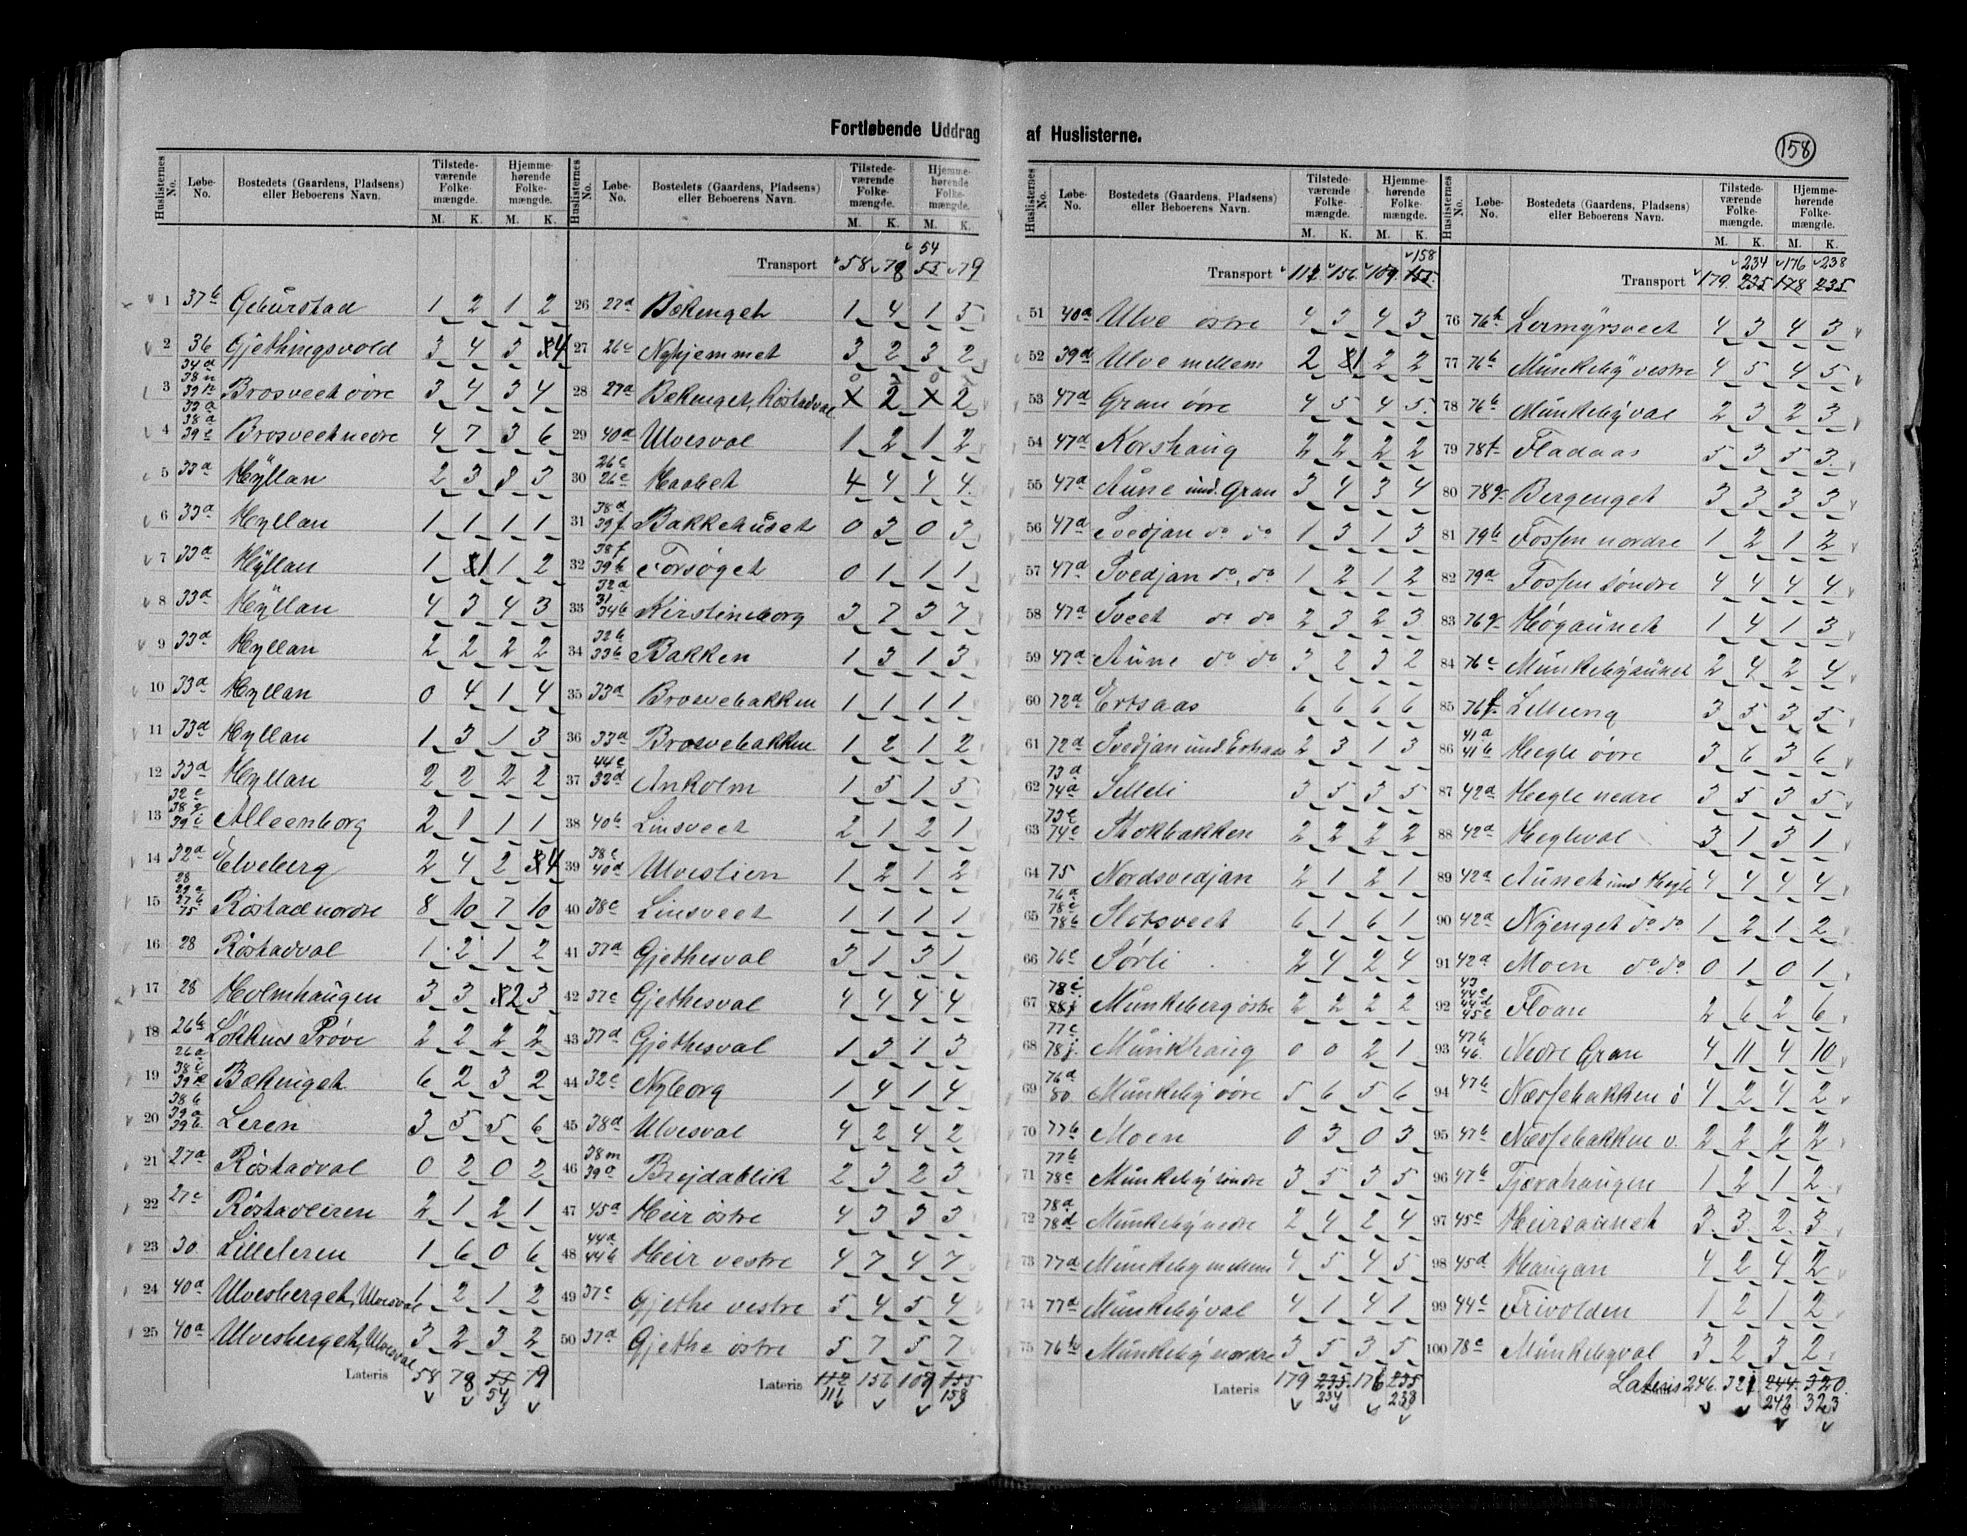 Fortløbende Uddrag af Huslisterne.
158
Huslisternes No. Løbe-No. Bostedets (Gaardens, Pladsens) eller Beboerens Navn. Tilstedeværende Folkemængde. M. K. Hjemmehørende Folkemængde. M. K.
1 37b Geburstad 1 2 1 2
2 36 Gjethingsvold 3 4 3 4
3 Brosveet øvre 3 4 3 4
4 Brosveet nedre 4 7 3 6
5 33a Hÿllan 2 3 3 3
6 33a Hyllan 1 1 1 1
7 33a Hÿllan 1 1 1 2
8 33a Hÿllan 4 3 4 3
9 33a Hyllan 2 2 2 2
10 33a Hyllan 0 4 1 4
11 33a Hyllan 1 3 1 3
12 33a Hyllan 2 2 2 2
13 Alleenborg 2 1 1 1
14 32a Elveberg 2 4 2 4
15 Røstad nordre 8 10 7 10
16 28 Røstadval 1 2 1 2
17 28 Holmhaugen 3 3 2 3
18 26b Løkkens Prøve 2 2 2 2
19 Bækenget 6 2 3 2
20 Leren 3 5 5 6
21 27a Røstadval 0 2 0 2
22 27c Røstadleiren 2 1 2 1
23 30 Lilleleren 1 6 0 6
24 40a Ulvesberget, Ulvesval 1 2 1 2
25 40a Ulvesberget, Ulvesval 3 2 3 2
Lateris 58 78 55 79
54
Huslisternes No. Løbe-No. Bostedets (Gaardens, Pladsens) eller Beboerens Navn. Tilstedeværende Folkemængde. M. K. Hjemmehørende Folkemængde. M. K.
54
Transport 58 78 55 79
26 27a Bækenget 1 4 1 5
27 26c Nyhjemmet 3 2 3 2
28 27a Bækenget, Røstadval x 2 x 2
29 40a Ulvesval 1 2 1 2
30 26c 26e Haabet 4 4 4 4
31 38d 39f Bakkehuset 0 3 0 3
32 38f 39b Forsøget 0 1 1 1
33 32a 31 34b Kirstineborg 3 7 3 7
34 32b 33b Bakken 1 3 1 3
35 33a Brosvebakken 1 1 1 1
36 33a Brosvebakken 1 2 1 2
37 44c 32d Ankolm 1 5 1 5
38 40b Linsveet 2 1 2 1
39 38c 40d Ulvestien 1 2 1 2
40 38c Linsveet 1 1 1 1
41 37a Gjethesval 3 1 3 1
42 37c Gjethesval 4 4 4 4
43 37a Gjethesval 1 3 1 3
44 32c Nyborg 1 4 1 4
45 38a Ulvesval 4 2 4 2
46 38m 39a Brejdablik 2 3 2 3
47 45a Heir østre 4 3 3 3
48 44a 44b Heir vestre 4 7 4 7
49 37c Gjethe vestre 5 4 5 4
50 37a Gjethe østre 5 7 5 7
Lateris 112 156 109 155
111 158
Huslisternes No. Løbe-No. Bostedets (Gaardens, Pladsens) eller Beboerens Navn. Tilstedeværende Folkemængde. M. K. Hjemmehørende Folkemængde. M. K.
158
Transport 111 156 109 155
51 40a Ulve østre 4 3 4 3
52 39d Ulve mellem 2 1 2 2
53 47a Gran øvre 4 5 4 5
54 47a Korshaug 2 2 2 2
55 47a Aune und. Gran 3 4 3 4
56 47a Svedjan do do 1 3 1 3
57 47a Svedjan do, do 1 2 1 2
58 47a Sveet do do 2 3 2 3
59 47a Aune do do 3 2 3 2
60 72a Ertsaas 6 6 6 6
61 72a Svedjan und. Ertsaas 2 3 1 3
62 73a 74a Selleli 3 5 3 5
63 73c 74c Stokbakken 2 2 2 2
64 75 Nordsvedjan 2 1 2 1
65 76a 78c 78b Slotsveet 6 1 6 1
66 76c Sørli 2 4 2 4
67 78i Munkeberg østre 2 2 2 2
68 77c 78j Munkhaug 0 0 2 1
69 76a 80 Munkeby øvre 5 6 5 6
70 77b Moen 0 3 0 3
71 77b 78c Munkeby søndre 3 5 3 5
72 78a 78d Munkeby nedre 2 4 2 4
73 77a Munkeby mellem 4 5 4 5
74 77a Munkebyval 4 1 4 1
75 76b Munkeby nordre 3 5 3 5
Lateris 179 235 176 235
234 238
Huslisternes No. Løbe-No. Bostedets (Gaardens, Pladsens) eller Beboerens Navn. Tilstedeværende Folkemængde. M. K. Hjemmehørende Folkemængde. M. K.
234 176 238
Transport 179 235 178 235
76 76h Lermyrsveet 4 3 4 3
77 76b Munkeby vestre 4 5 4 5
78 76b Munkebyval 2 3 2 3
79 78f Fladaas 5 3 5 3
80 78g Bergenget 3 3 3 3
81 79b Fossen nordre 1 2 1 2
82 79a Fossen søndre 4 4 4 4
83 76g Høgaunet 1 4 1 3
84 76e Munkebyaunet 2 4 2 4
85 76f Lilleung 3 5 3 5
86 41a 41b Hegle øvre 3 6 3 6
87 42a Hegle nedre 3 5 3 5
88 42a Hegleval 3 1 3 1
89 42a Aunet und. Hegle 4 4 4 4
90 42a Nyenget do do 1 2 1 2
91 42a Moen do do 0 1 0 1
92 43 44c 44d 45c Floan 2 6 2 6
93 47b 46 Nedre Gran 4 11 4 10
94 47b Næssebakken ö 4 2 4 2
95 47b Næssebakken v. 2 2 2 2
96 47b Tjærahaugen 1 2 1 2
97 45c Heirsaunet 3 3 2 3
98 45d Haugan 4 2 4 2
99 44c Frivolden 1 2 1 2
100 78c Munkebyval 3 2 3 2
Lateris 246 321 244 320
242 323